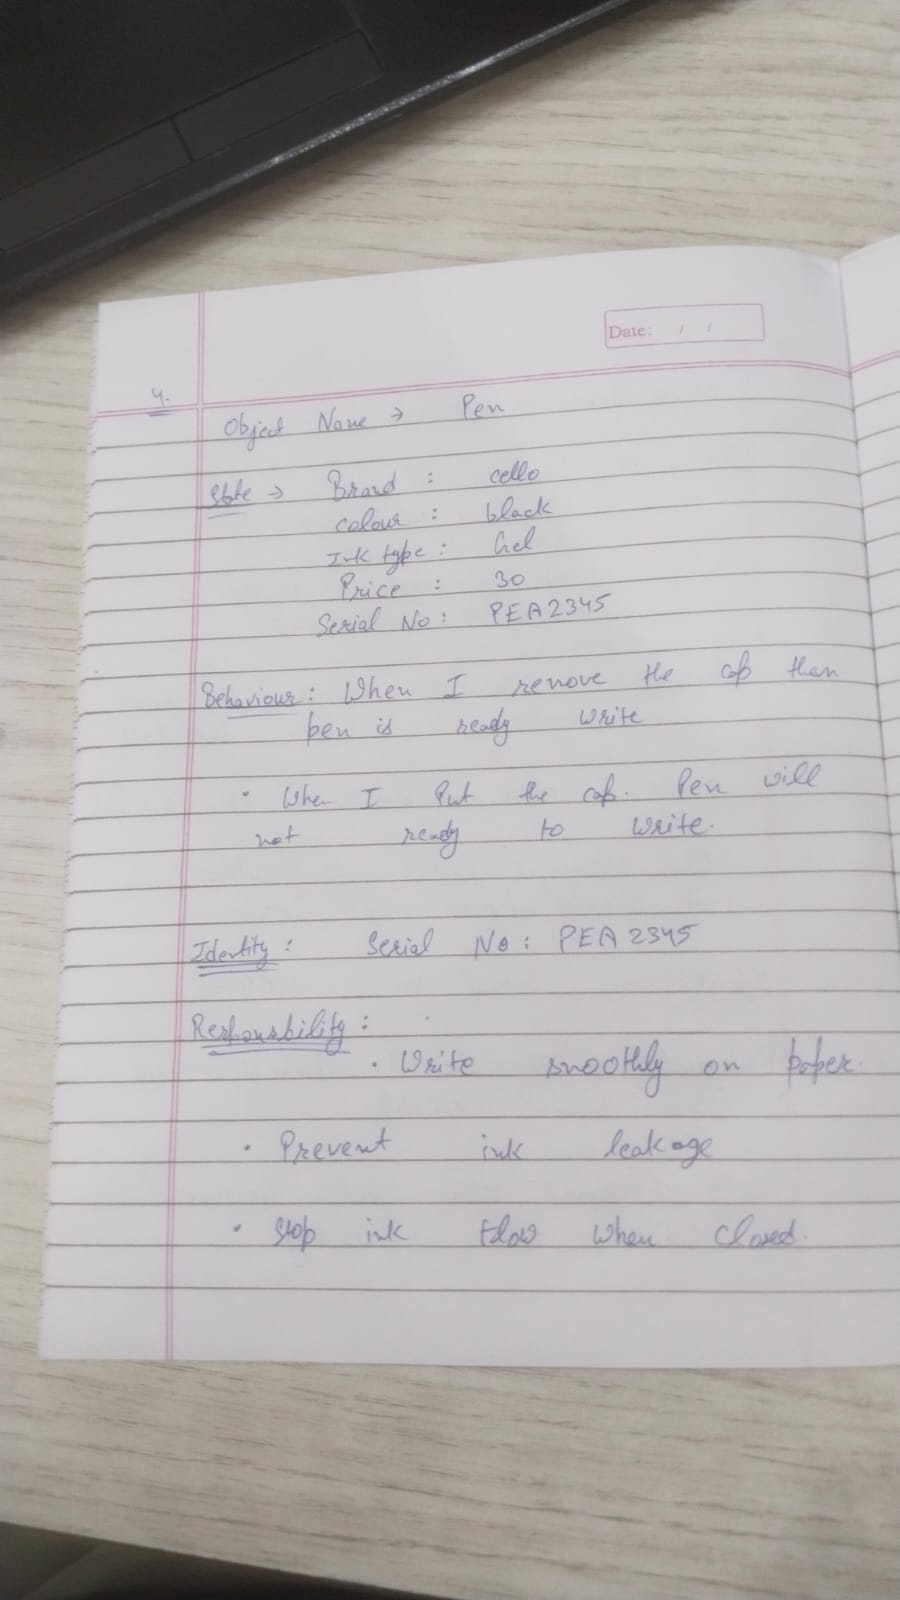 Date: / /
4.
Object Name → Pen
State → Brand : cello
colour : black
Ink type : Gel
Price : 30
Serial No : PEA2345
Behaviour : When I remove the cap then
pen is ready write
• When I Put the cap. Pen will
not ready to write.
Identity : Serial No : PEA2345
Responsbility :
• Write smoothly on paper.
• Prevent ink leakage
• Stop ink flow when closed.